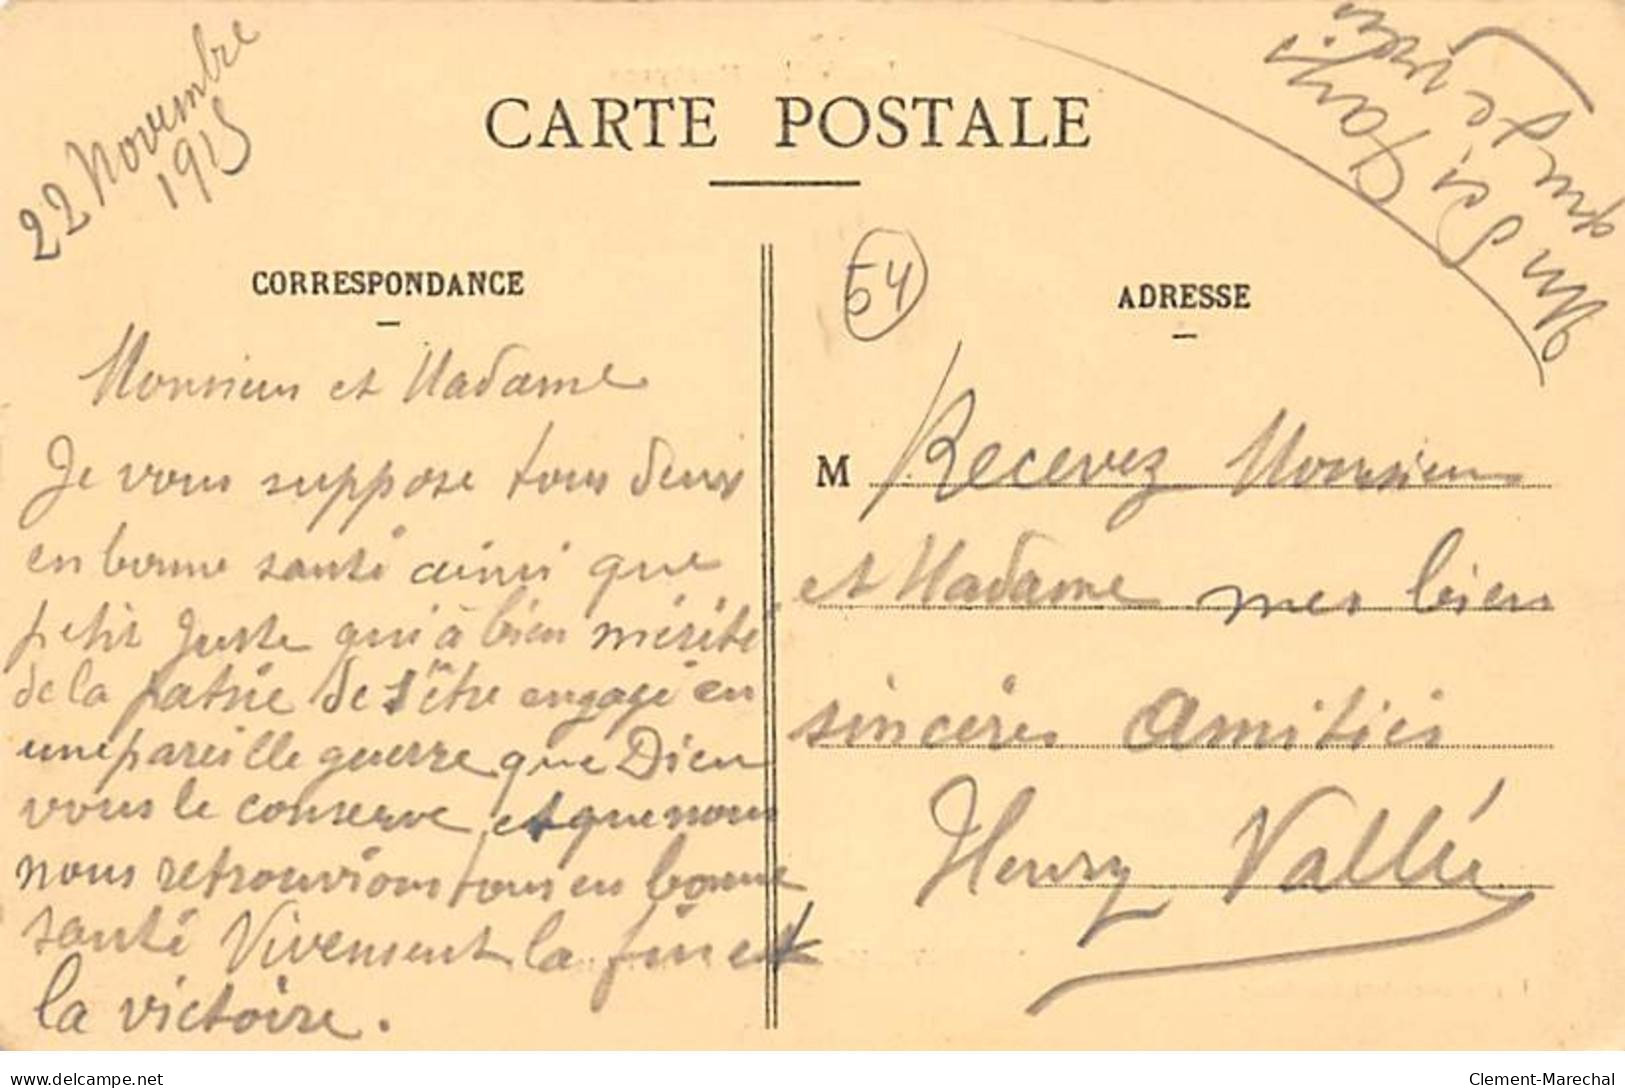 22 Novembre
1915
CARTE POSTALE
CORRESPONDANCE
Monsieur et Madame
Je vous suppose tous deux
en bonne santé ainsi que
petit Juste qui à bien mérité
de la patrie de s'être engagé en
une pareille guerre que Dieu
vous le conserve et que nous
nous retrouvions tous en bonne
santé Vivement la fin et
la victoire.
54
ADRESSE
M Recevez Monsieur
et Madame mes bien
sincères amitiés
Henry Vallée
Clement-Marechal
delcampe.net